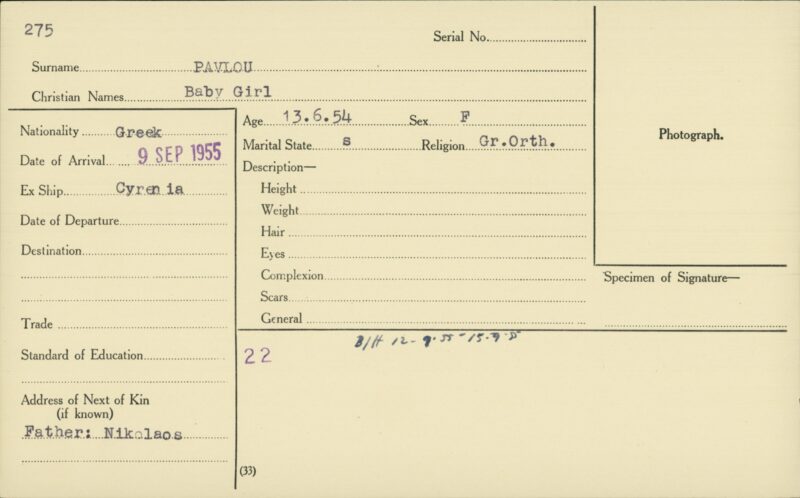 275
Serial No.
Surname PAVLOU
Christian Names Baby Girl
Nationality Greek
Date of Arrival 9 SEP 1955
Ex Ship Cyrenia
Date of Departure
Destination
Trade
Standard of Education
Address of Next of Kin
(if known)
Father: Nikolaos
Age 13.6.54 Sex F
Marital State s Religion Gr.Orth.
Description—
Height
Weight
Hair
Eyes
Complexion
Scars
General
B/H 12-9-55-15.9.5
22
(33)
Photograph.
Specimen of Signature—